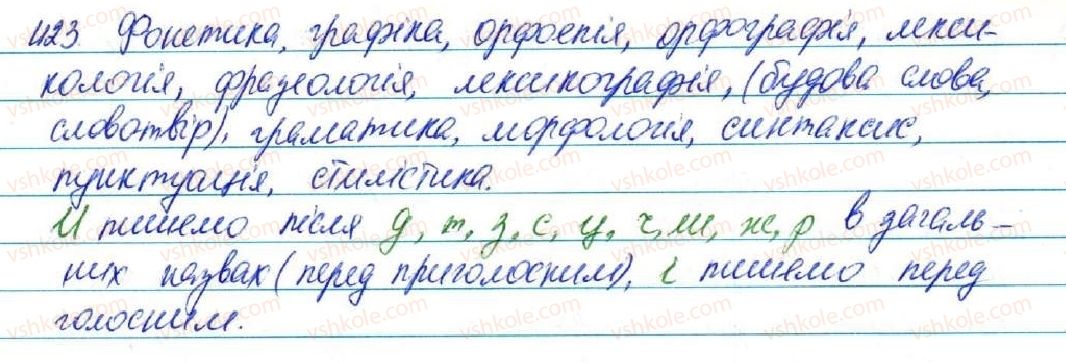 423 Фонетика, графіка, орфоепія, орфографія, лекси-
кологія, фразеологія, лексикографія, (будова слова,
словотвір), граматика, морфологія, синтаксис,
пунктуація, стилістика.
И пишемо після д, т, з, с, ц, ч, ш, ж, р в загаль-
них назвах (перед приголосним), і пишемо перед
голосним.